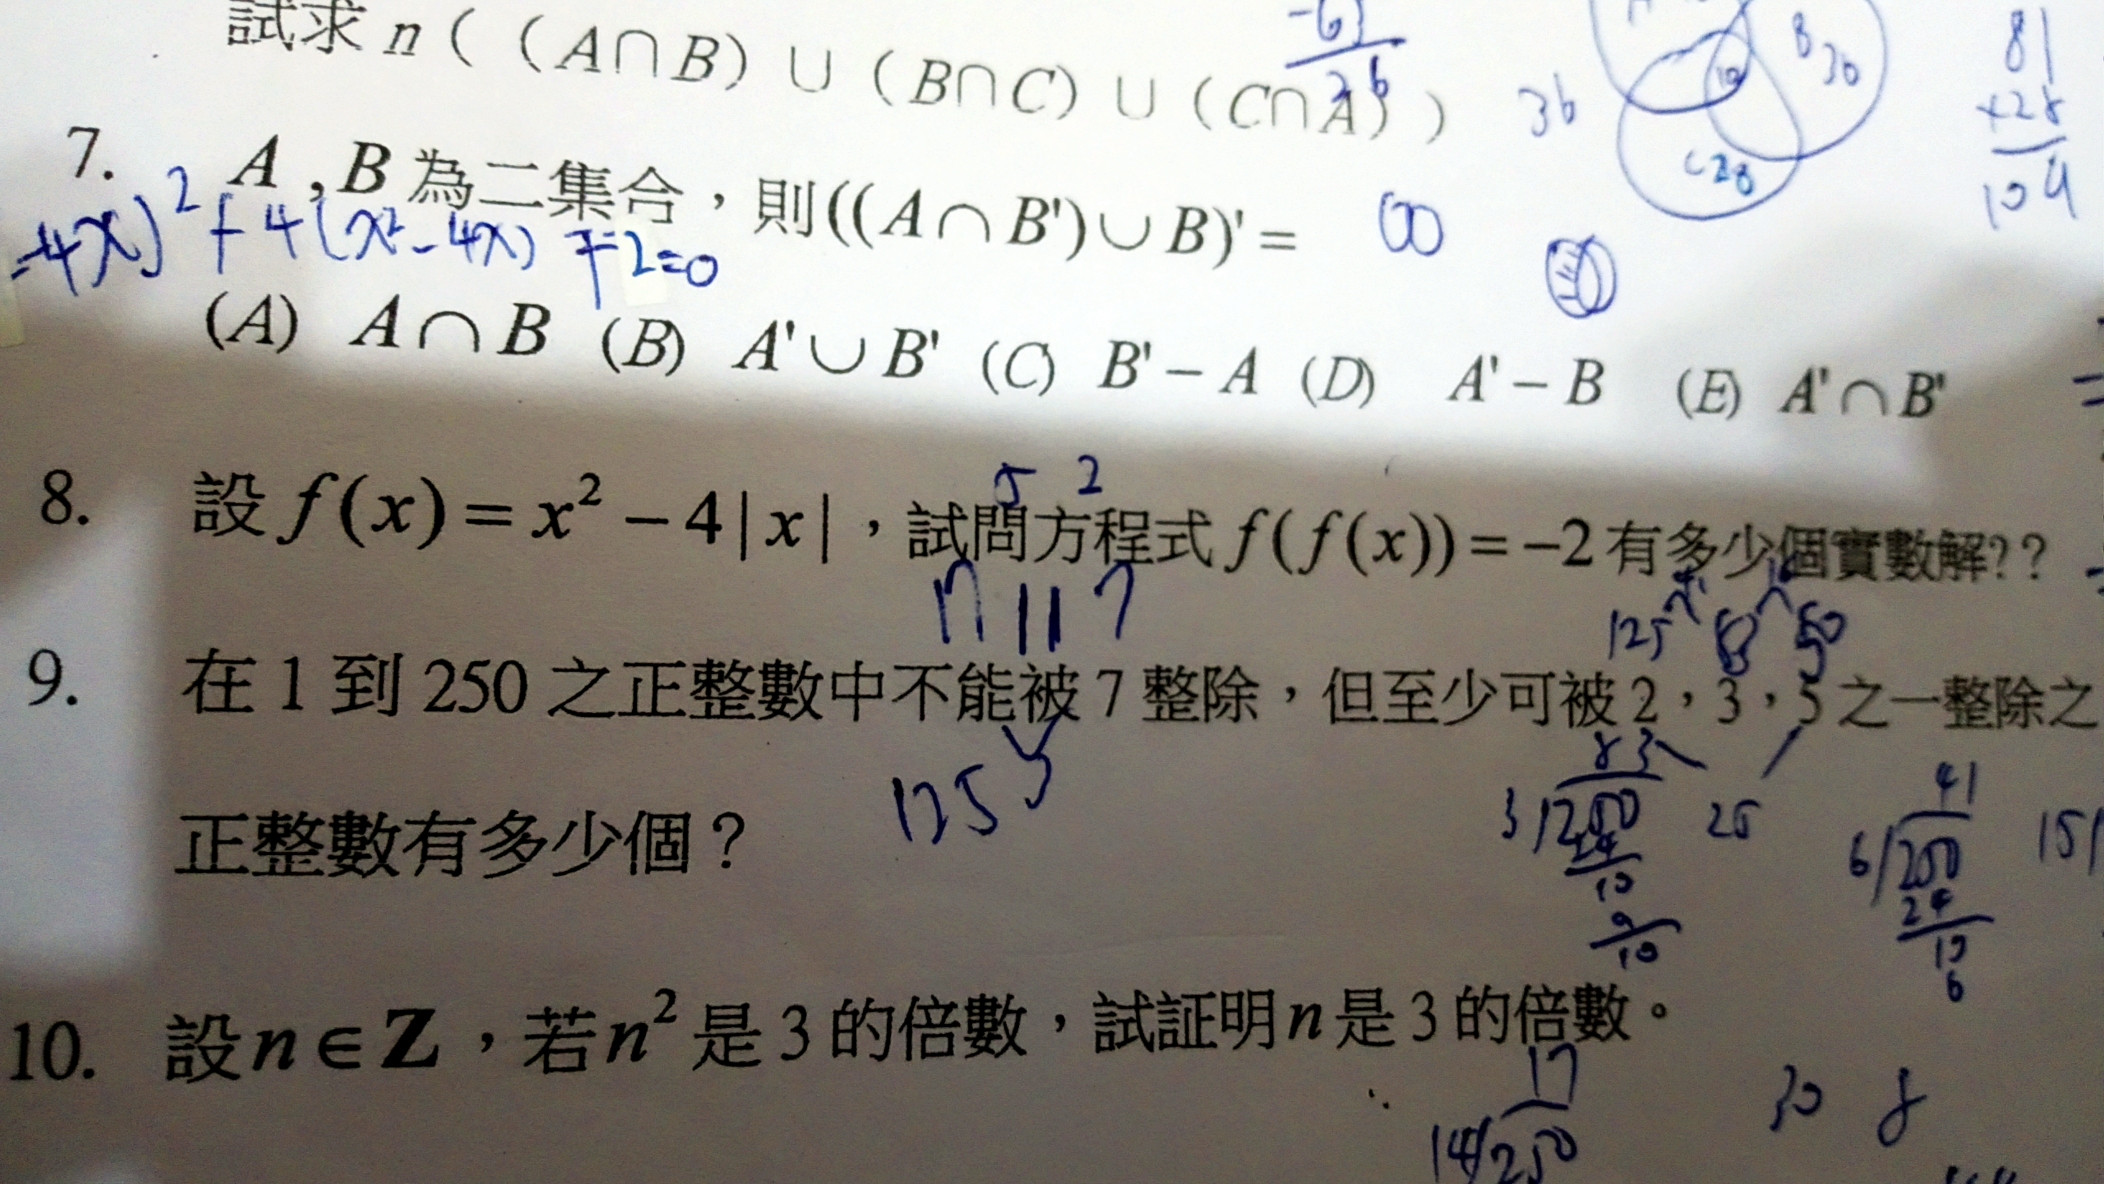 試求 n ( ( A∩B ) ∪ ( B∩C ) ∪ ( C∩A ) )
36
B 30
C 28
81
+28
104
7. A , B 為二集合，則((A∩B')∪B)'=
-4x)² + 4(x²-4x) +2=0
(A) A∩B (B) A'∪B' (C) B'－A (D) A'－B (E) A'∩B'
8. 設 f(x) = x² － 4|x|，試問方程式 f(f(x)) = －2 有多少個實數解??
5 2
17 11 7
125 83 50
9. 在 1 到 250 之正整數中不能被 7 整除，但至少可被 2，3，5 之一整除之
正整數有多少個？
125 5
83
3 250
24
10
9
10
25
41
6 250
24
10
6
151
10. 設 n∈Z，若 n² 是 3 的倍數，試証明 n 是 3 的倍數。
17
14 250
30 8